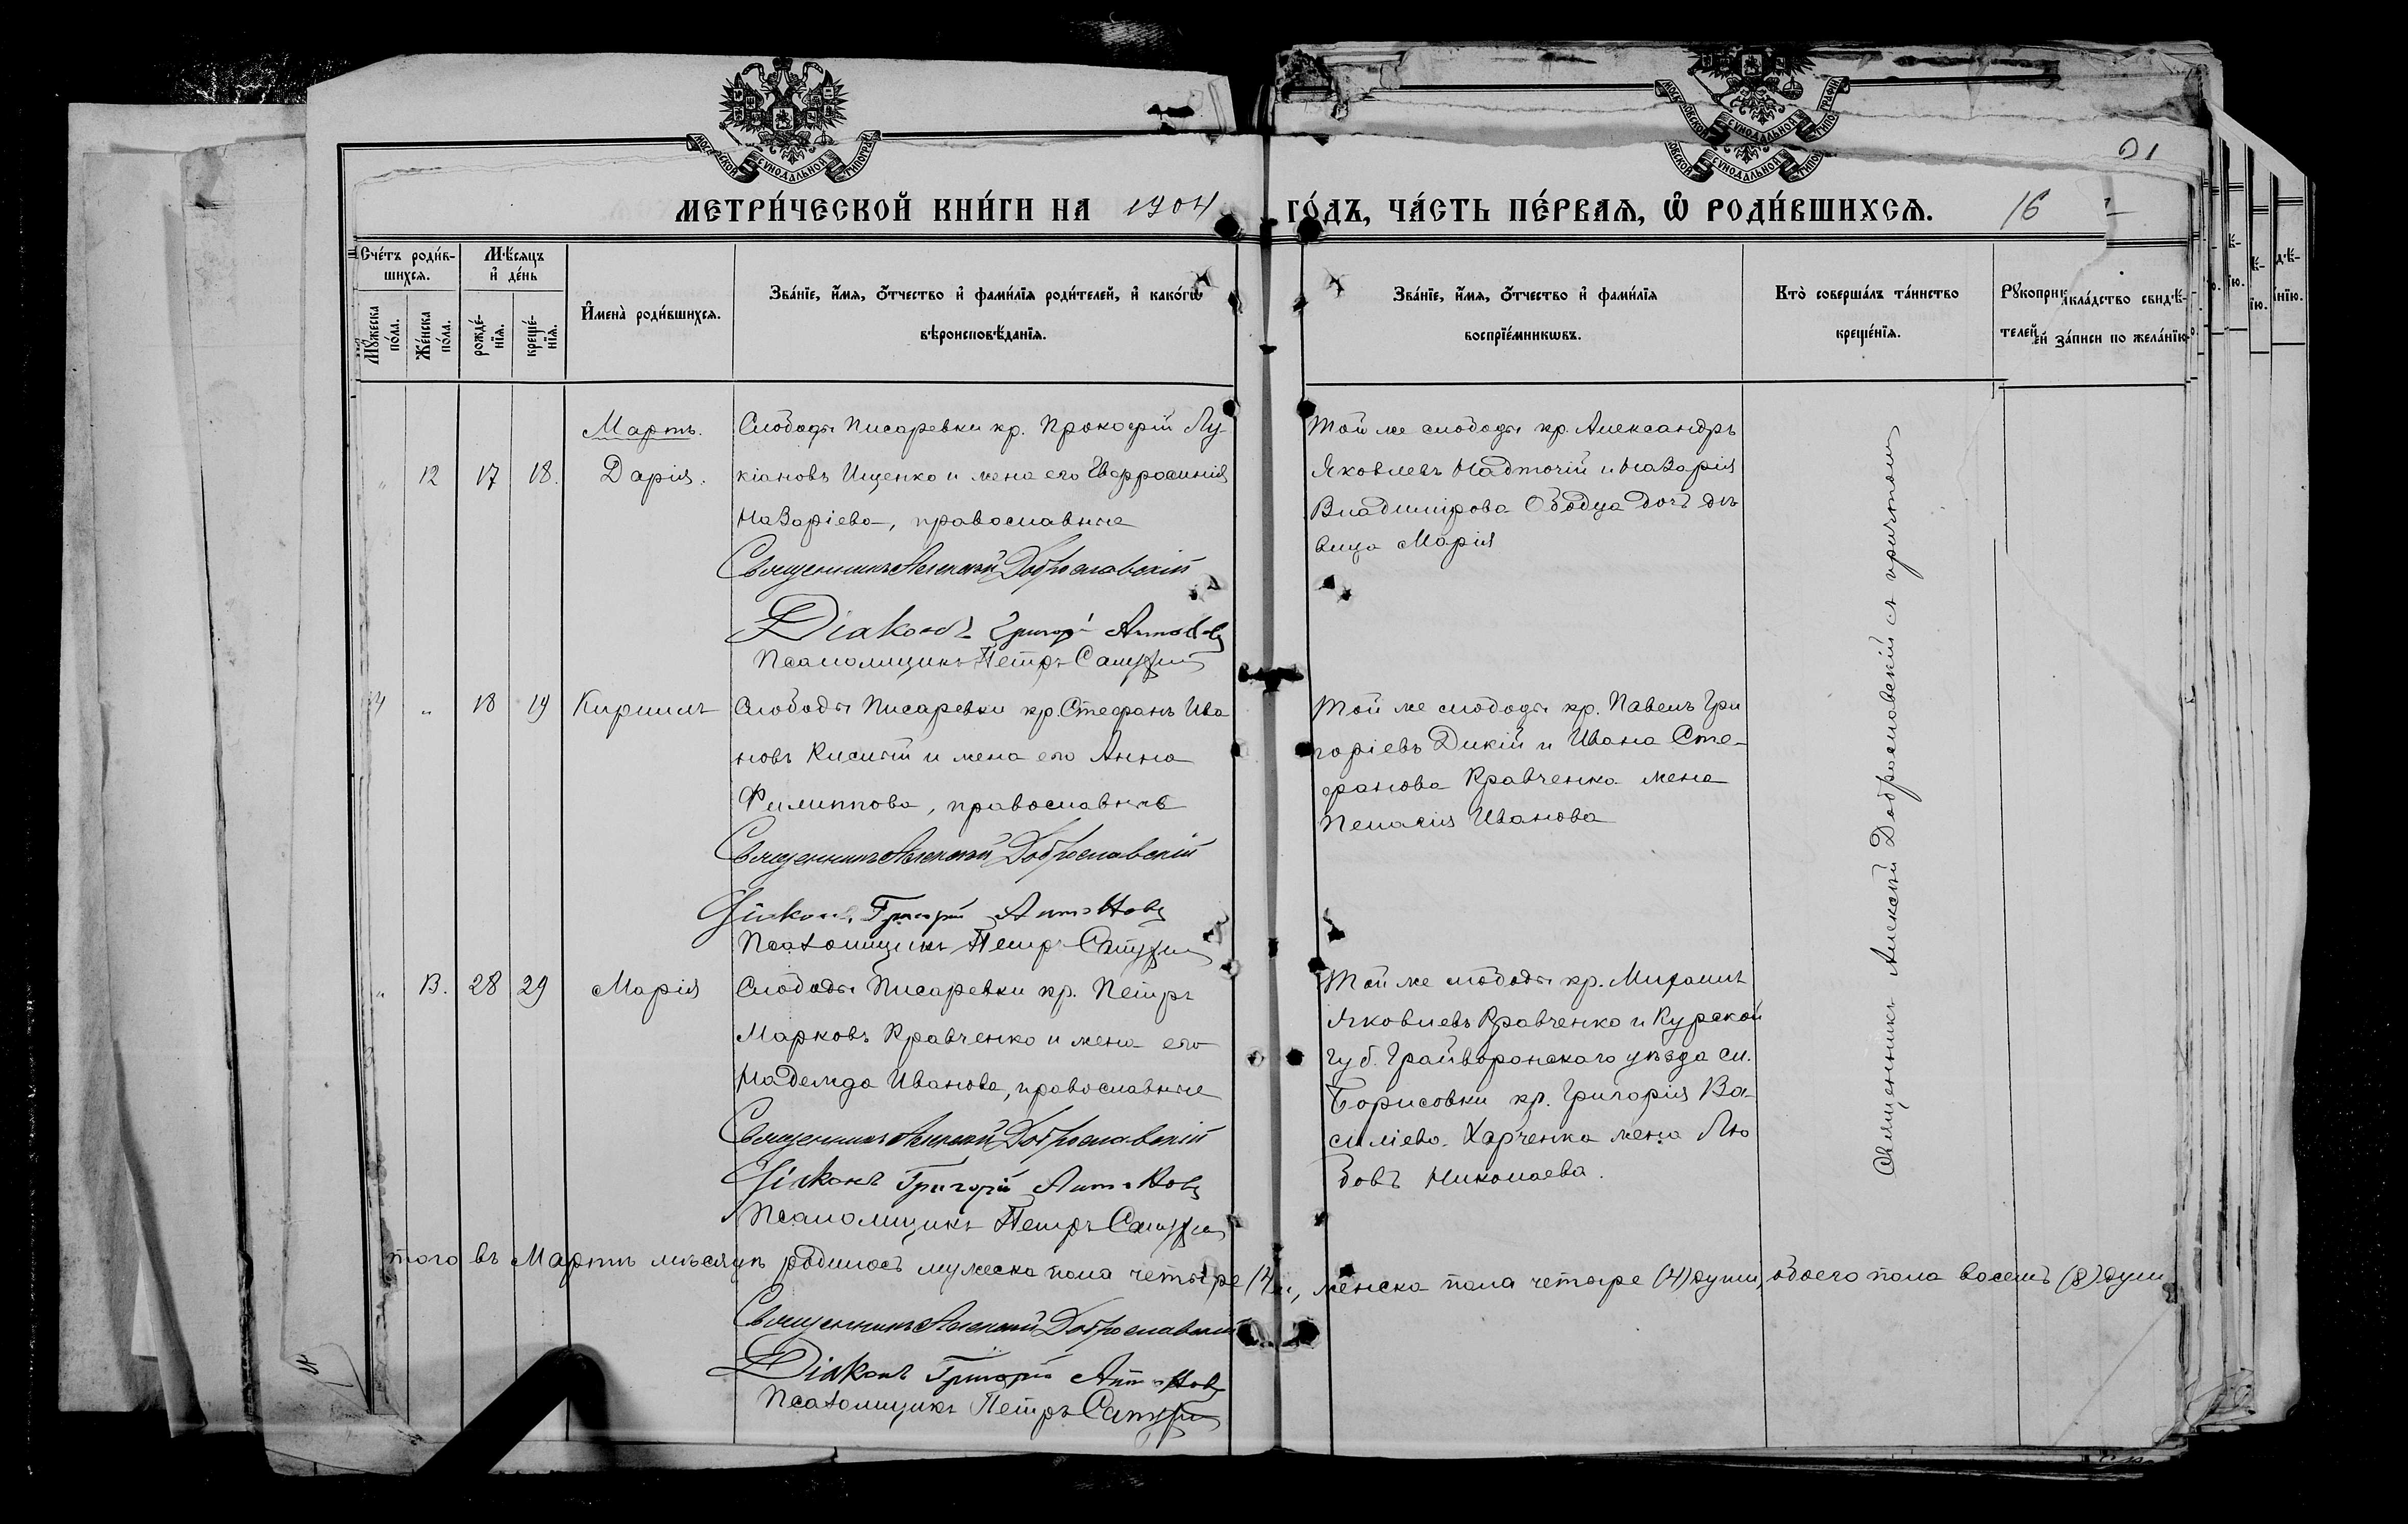 МОСКОВСКОЙ СѴНОДАЛЬНОЙ ТИПОГРАФІИ
МЕТРИ́ЧЕСКОЙ КНИ́ГИ НА 1904 ГО́ДЪ, ЧА́СТЬ ПЕ́РВАЯ, Ѡ РОДИ́ВШИХСЯ.
16
Сче́тъ роди́в-
шихся.
Мꙋ́жеска
по́ла.
Же́нска
по́ла.
Мѣ́сяцъ
и҆ де́нь
рожде́-
нїя.
креще́-
нїя.
И҆мена̀ роди́вшихся.
Зва́нїе, и҆́мя, ѻ҆́тчество и҆ фами́лїя роди́телей, и҆ како́гѡ
вѣроисповѣ́данїя.
Зва́нїе, и҆́мя, ѻ҆́тчество и҆ фами́лїя
воспрїе́мникѡвъ.
Кто̀ соверша́лъ та́инство
креще́нїя.
Рꙋкоприкла́дство свидѣ́-
телей за́писи по жела́нїю
Мартъ.
„ 12 17 18. Дарія.
Слободы Писаревки кр. Прокофій Лу-
кіановъ Ищенко и жена его Евфросинія
Назаріева, православные
Священникъ Алексій Доброславскій
Діаконъ Григорій
Псаломщикъ Петръ
Той же слободы кр. Александръ
Яковлевъ Надточій и Назарія
Владимірова Ободца дочь дѣ
вица Марія
4 „ 18 19 Кириллъ
Слободы Писаревки кр. Стефанъ Ива
новъ Кислый и жена его Анна
Филиппова, православные
Священникъ Алексій Доброславскій
Діаконъ Григорій
Псаломщикъ Петръ
Той же слободы кр. Павелъ Гри
горіевъ Дикій и Ивана Сте-
фанова Кравченка жена
Пелагія Иванова
„ 13. 28 29 Марія
Слободы Писаревки кр. Петръ
Марковъ Кравченко и жена его
Надежда Иванова, православные
Священникъ Алексій Доброславскій
Діаконъ Григорій
Псаломщикъ Петръ
Той же слободы кр. Михаилъ
Яковлевъ Кравченко и Курской
губ. Грайворонскаго уѣзда сл.
Борисовки кр. Григорія Ва-
силіева Харченка жена Лю
бовь Николаева.
Священникъ Алексій Доброславскій съ причтомъ
того въ Мартѣ мѣсяцѣ родилось мужеска пола четыре (4), женска пола четыре (4) души, обоего пола восемь (8) душ
Священникъ Алексій Доброславскій
Діаконъ Григорій
Псаломщикъ Петръ